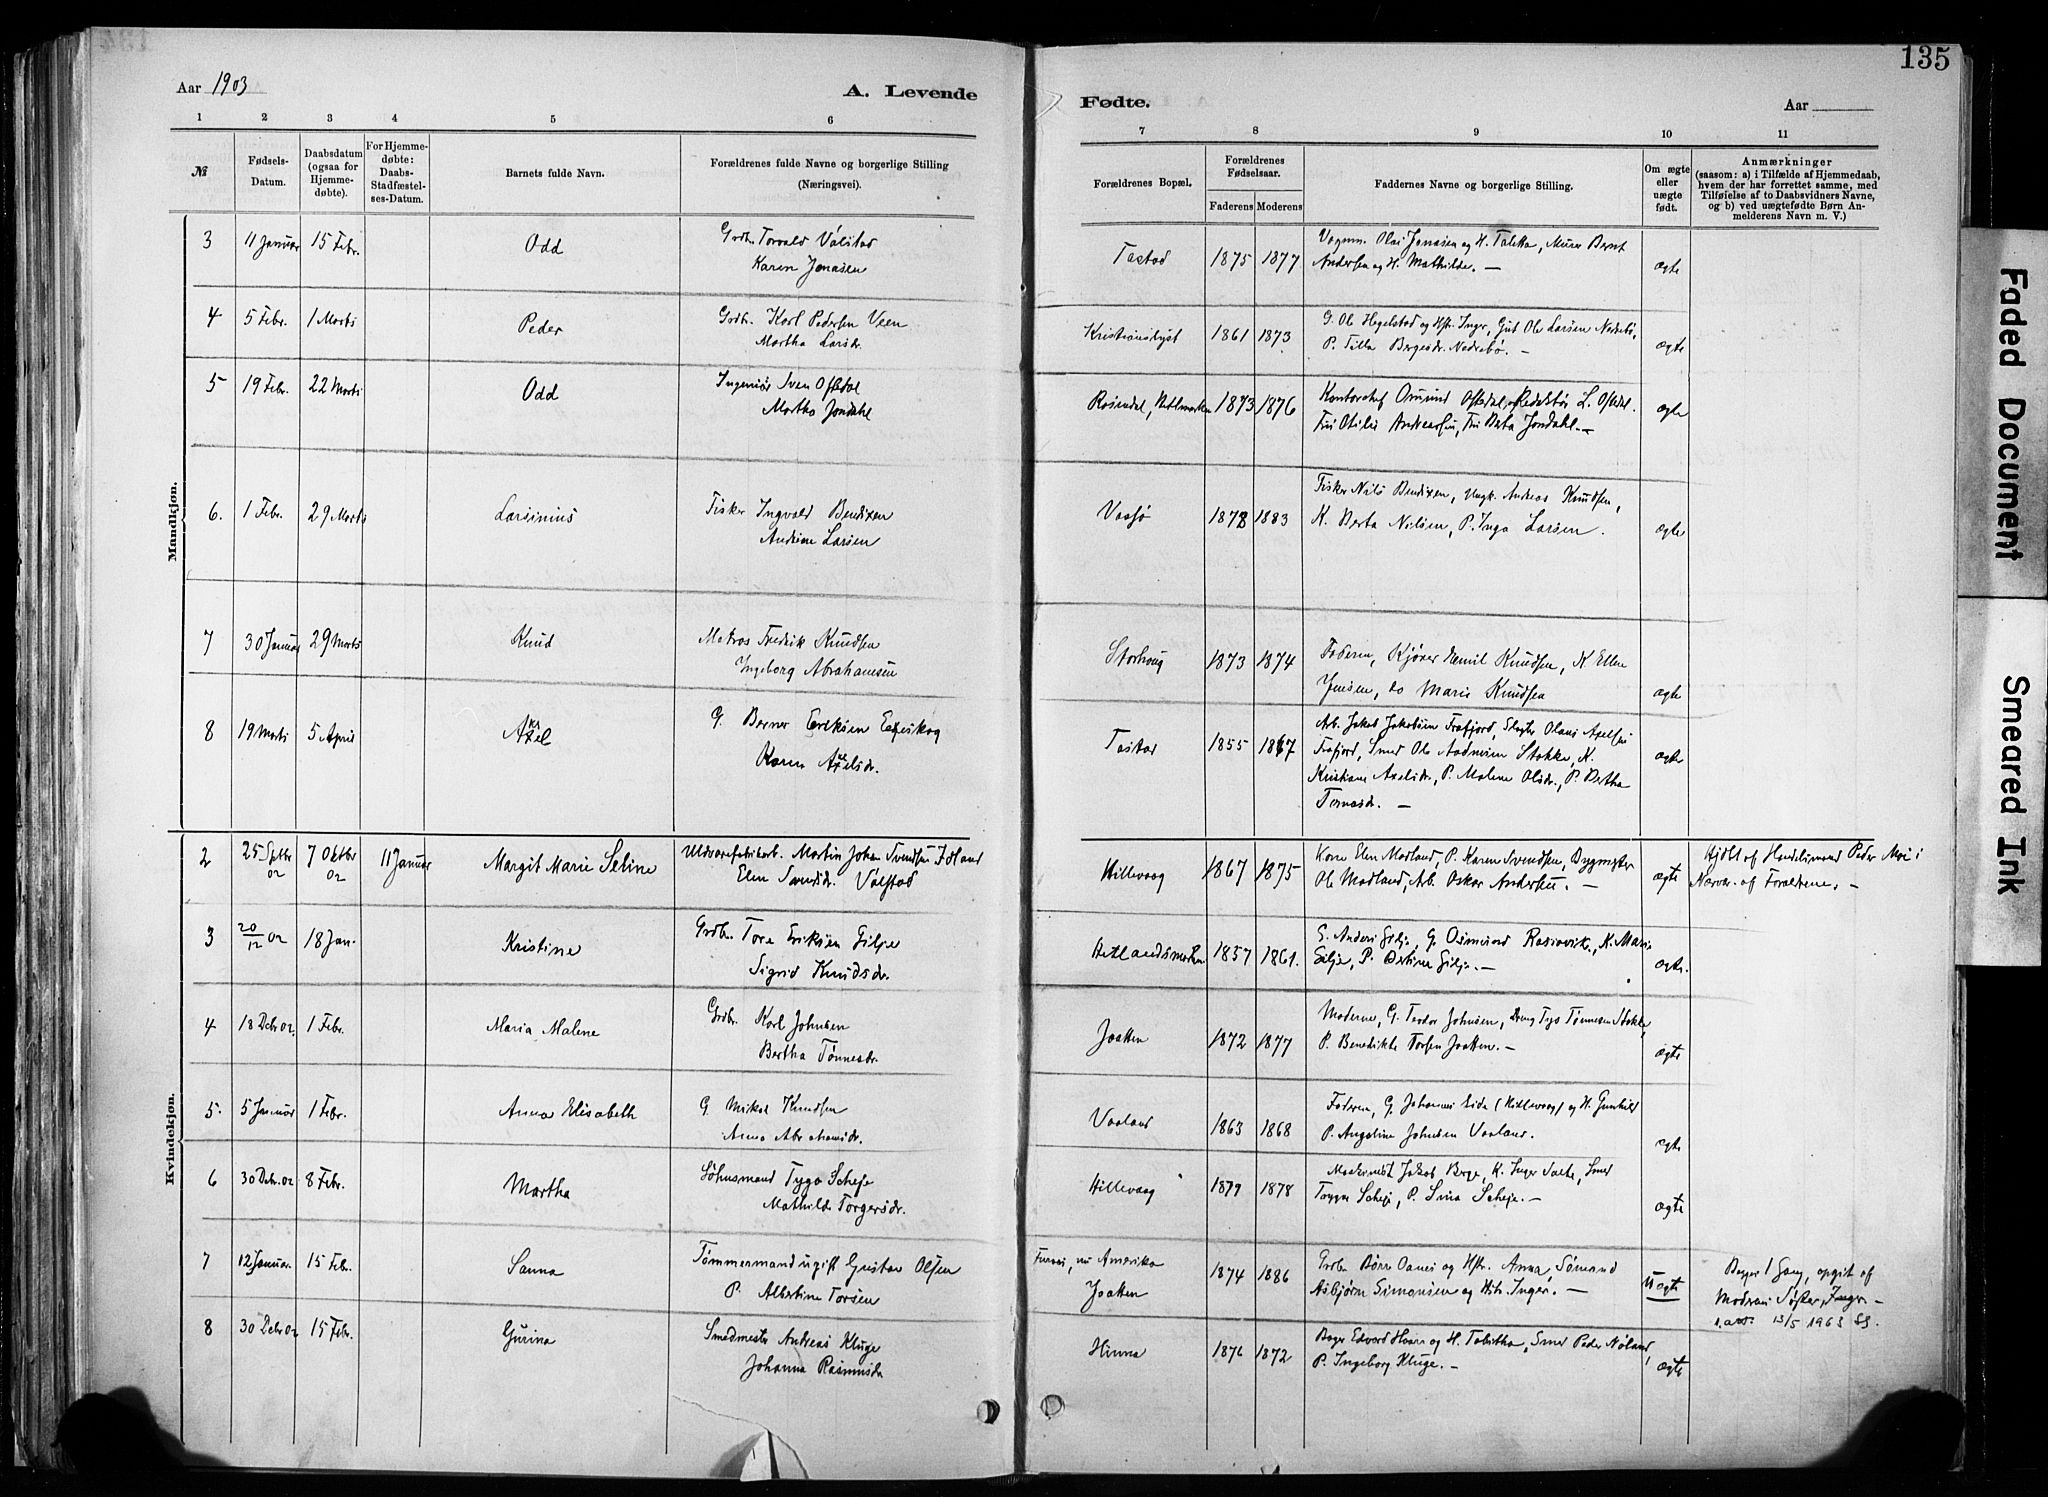 135
Aar 1903
A. Levende
Fødte.
Aar
1 2 3 4 5 6 7 8 9 10 11
№
Fødsels-Datum.
Daabsdatum (ogsaa for Hjemmedøbte).
For Hjemmedøbte: Daabs-Stadfæstelses-Datum.
Barnets fulde Navn.
Forældrenes fulde Navne og borgerlige Stilling (Næringsvei).
Forældrenes Bopæl.
Forældrenes Fødselsaar.
Faderens Moderens
Faddernes Navne og borgerlige Stilling.
Om ægte eller uægte født.
Anmærkninger
(saasom: a) i Tilfælde af Hjemmedaab, hvem der har forrettet samme, med Tilføielse af to Daabsvidners Navne, og b) ved uægtefødte Børn Anmelderens Navn m. V.)
Mandkjøn.
3 11 Januar 15 Febr. Odd Grdbr. Torvald Vålstad
Karen Jonasen
Tastad 1875 1877 Vognm. Olai Jonasen og H. Talette, Murer Bernt
Andersen og H. Mathilde. — ægte
4 5 Febr. 1 Marts Peder Grdb. Karl Pedersen Veen
Martha Larsdr.
Kristianslyst 1861 1873 G. Ole Hegelstad og Hstr. Inger, Gut Ole Larsen Nedrebø,
P. Tilla Bergesdr. Nedrebø. — ægte
5 19 Febr. 22 Marts Odd Ingeniør Sven Oftedal
Martha Jondahl
Rosendal, Hetlmarken 1873 1876 Kontorchef Osmund Oftedal, Redaktør L. Oftedal.
Fru Otilie Andreassen, Fru Berta Jondahl. — ægte
6. 1 Febr. 29 Marts Larsinius Fisker Ingvald Bendixen
Andrine Larsen
Vassø 1878 1883 Fisker Nils Bendixen, Ungk. Andreas Knudsen,
K. Berta Nilsen, P. Inga Larsen. ægte
7 30 Januar 29 Marts Knud Matros Fredrik Knudsen
Ingeborg Abrahamsen
Storhaug 1873 1874 Faderen, Kjører Emil Knudsen, K Ellen
Jensen, do Marie Knudsen ægte
8 19 Marts 5 April Axel G. Berner Eriksen
Karen Axelsdr.
Tastad 1855 1867 Arb. Jakob Jakobsen Frafjord, Slagter Olaus Axelsen
Frafjord, Smed Ole Aadnesen Stokke, K.
Kristiane Axelsdr., P. Malene Olsdr., P. Bertha
Tornesdr. — ægte
Kvindekjøn.
2 25 Sptbr 02 7 Oktbr 02 11 Januar Margit Marie Seline Uldvarefabrikarb. Martin Johan Svendsen
Elen Svendsdr. Vålstad
Hillevaag 1867 1875 Kone Elen Madland, P. Karen Svendsen, Bygmester
Ole Madland, Arb. Oskar Andersen. — ægte
Hjdbt af Handelsmand Peder Moi i
Nærvær. af Forældrene. —
3 20/12 02 18 Jan. Kristine Grdbr. Tore Eriksen Gilje
Sigrid Knudsdr.
Hetlandsmarken 1857 1861. G. Anders Gilje, G. Osmund Rasvik, K. Marie
Gilje, P. Bertine Gilje. — ægte.
4 18 Debr 02 1 Febr. Maria Malene Grdbr. Karl Johnsen
Bertha Tønnesdr.
Jaatten 1872 1877 Moderne, G. Teodor Johnsen, Dreng Tys Tønnesen Stokke,
P. Benedikte Torsen Jaatten. — ægte
5. 5 Januar 1 Febr. Anna Elisabeth G. Mikal Knudsen
Anna Abrahamsdr.
Vaaland 1863 1868 Faderen, G. Johannes Eide (Hillevaag) og H. Gunhild
P. Angeline Johnsen Vaaland. ægte
6 30 Debr. 02 8 Febr. Martha Søhusmand Tygo Scheje
Mathilde Torgersdr.
Hillevaag 1879 1878 Maskinist Jakob Berge, K. Inger Salte, Smed
Trygve Scheje, P. Lina Scheje. — ægte
7 12 Januar. 15 Febr. Sanna Tømmermand ugift Gustav Olsen
P. Albertine Torsen
nu Amerika
Jaatten 1874 1886 Grdbr Børre Oanes og Hstr. Anna, Sømand
Asbjørn Simonsen og Hstr. Inger. — Uægte
Begges 1 Gang, opgit af
Moderens Søster, Inger —
13/5 1963 SS.
8 30 Debr 02 15 Febr. Gurina Smedmester Andreas Kluge
Johanna Rasmusdr
Hinna 1876 1872 Bager Edvard Hvarn og H. Tabitha, Smed Peder Nøland,
P. Ingeborg Kluge. — ægte
Faded Document
Smeared Ink